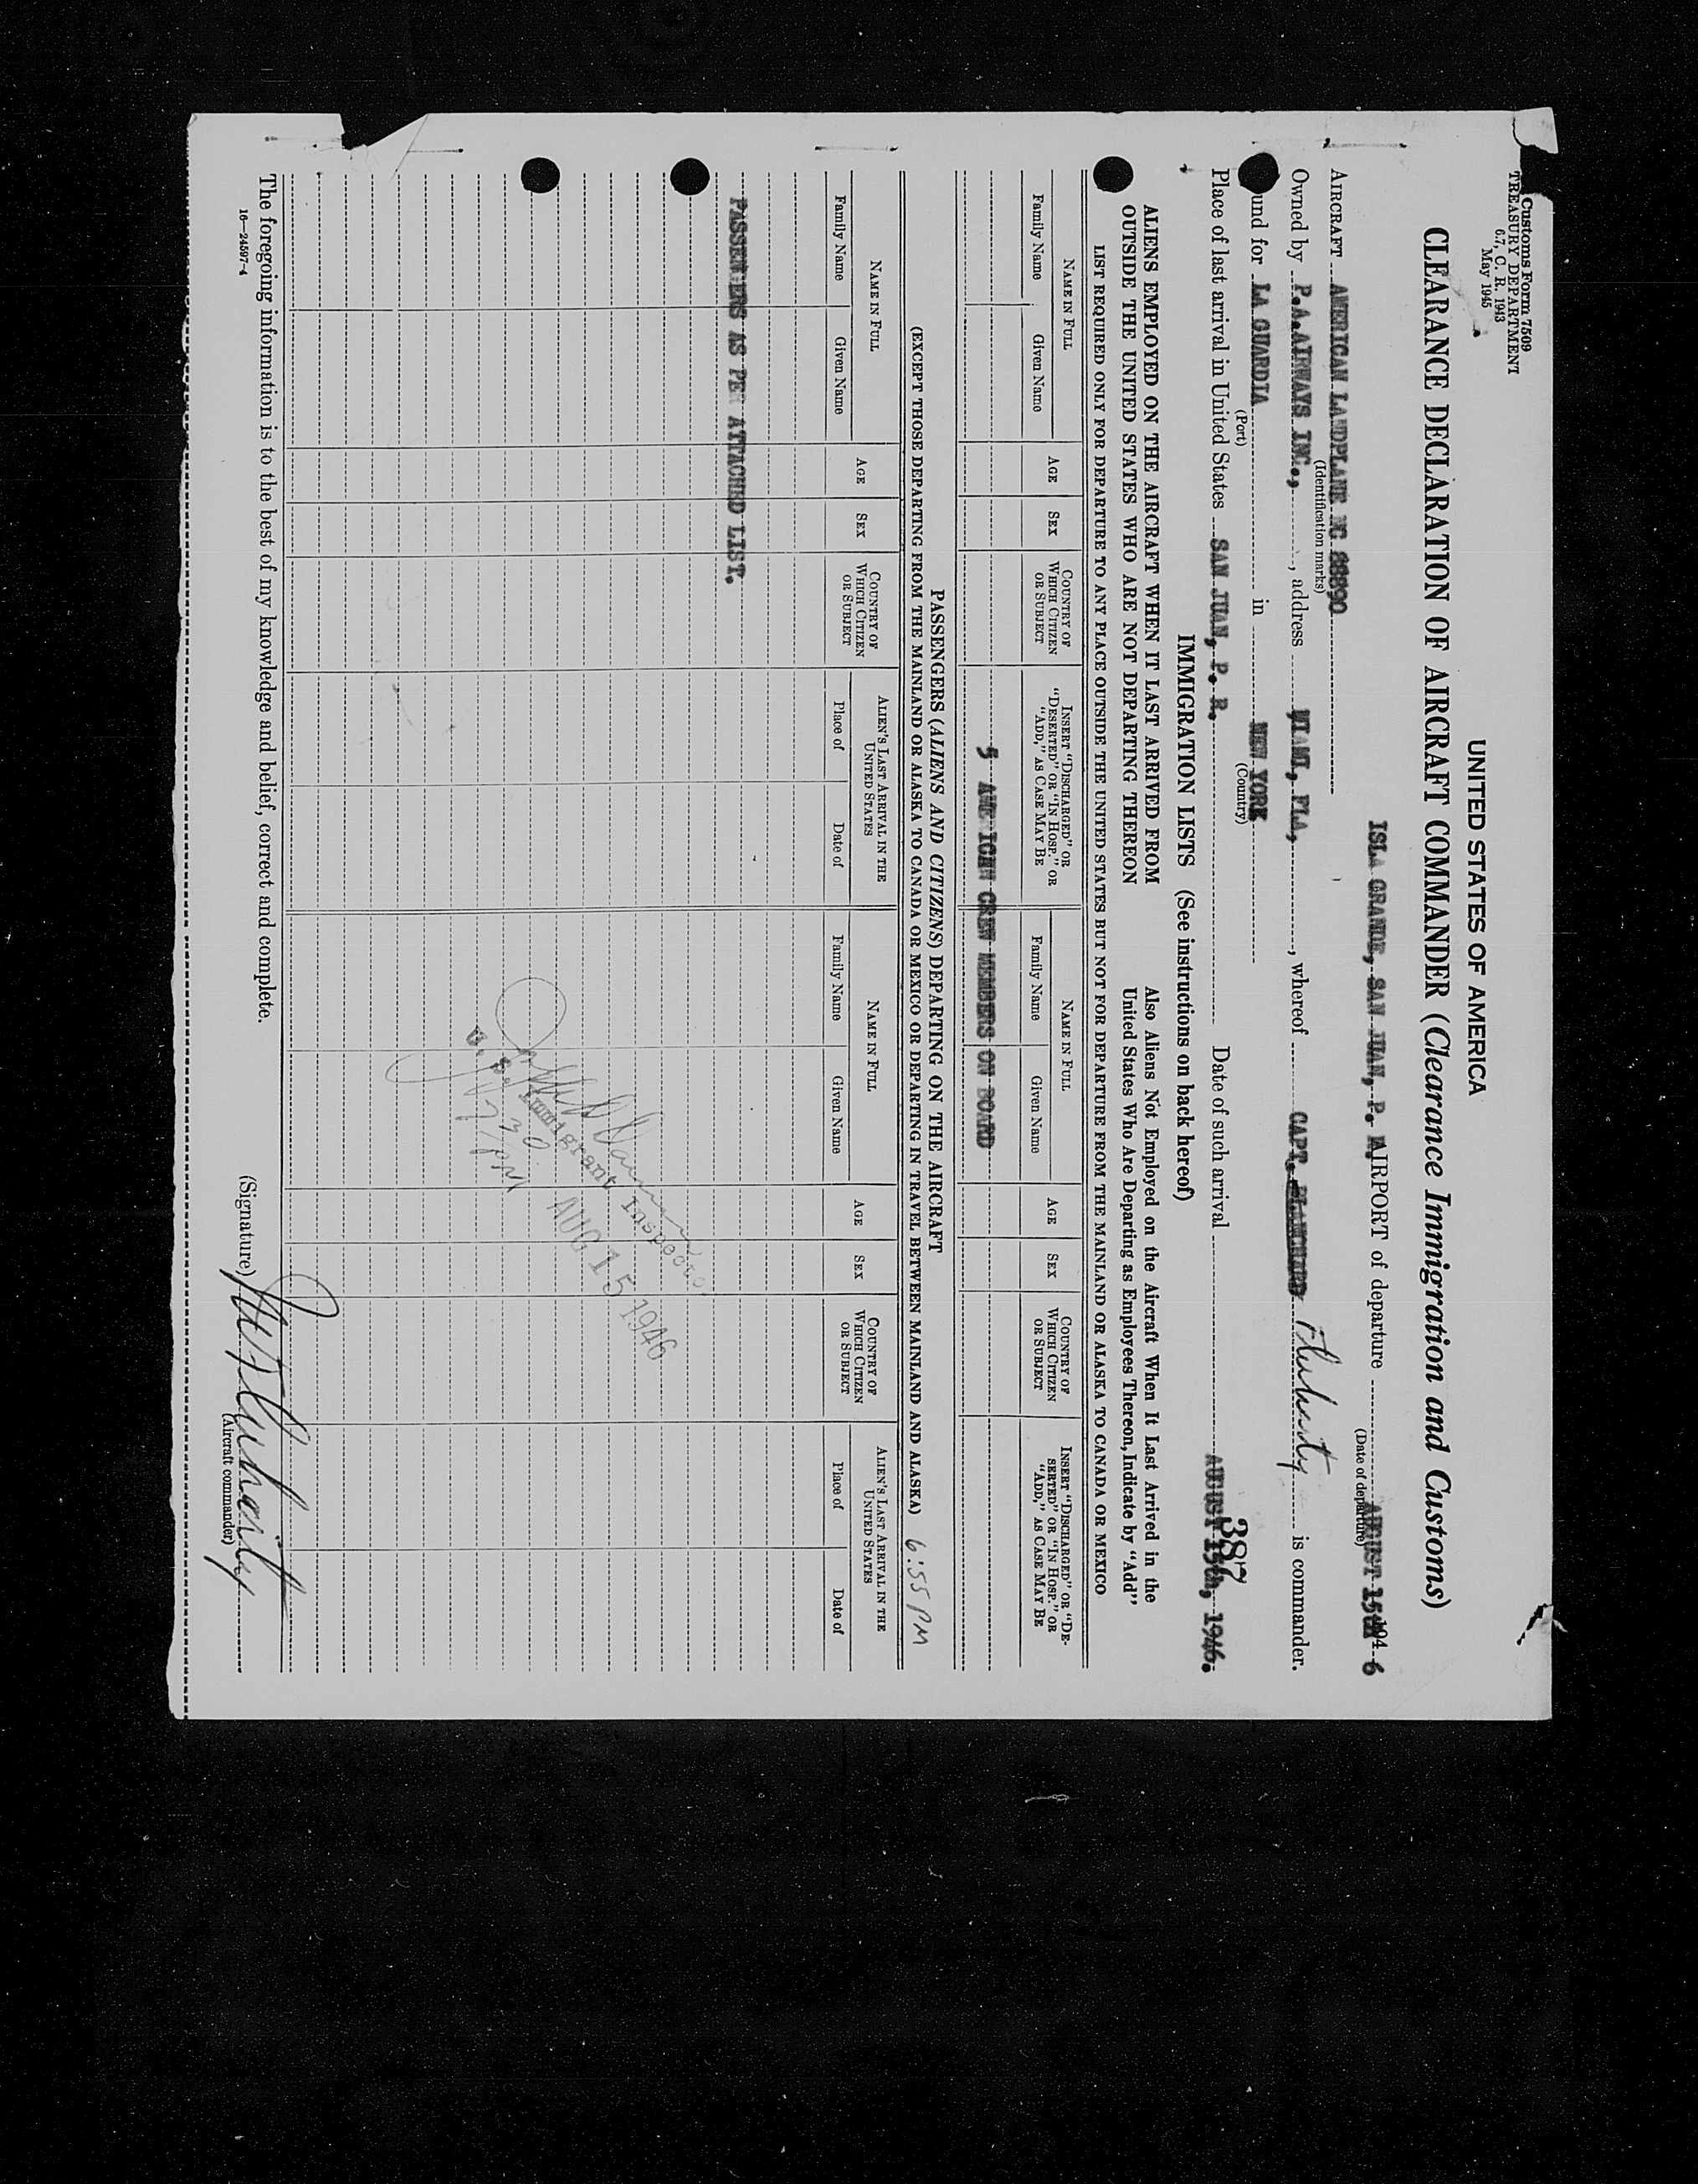 Customs Form 7509
TREASURY DEPARTMENT
6.7, C. R. 1943
May 1945
UNITED STATES OF AMERICA
CLEARANCE DECLARATION OF AIRCRAFT COMMANDER (Clearance Immigration and Customs)
ISLA GRANDE, SAN JUAN, P. R. AIRPORT of departure AUGUST 15th 194 6
(Date of departure)
AIRCRAFT AMERICAN LANDPLANE NC 88890
(Identification marks)
Owned by P.A.AIRWAYS INC., address MIAMI, FLA, whereof CAPT. Fluharty is commander.
und for LA GUARDIA in NEW YORK
(Port) (Country)
387
Place of last arrival in United States SAN JUAN, P. R. Date of such arrival AUGUST 15th, 1946.
IMMIGRATION LISTS (See instructions on back hereof)
ALIENS EMPLOYED ON THE AIRCRAFT WHEN IT LAST ARRIVED FROM OUTSIDE THE UNITED STATES WHO ARE NOT DEPARTING THEREON
Also Aliens Not Employed on the Aircraft When It Last Arrived in the United States Who Are Departing as Employees Thereon, Indicate by "Add"
LIST REQUIRED ONLY FOR DEPARTURE TO ANY PLACE OUTSIDE THE UNITED STATES BUT NOT FOR DEPARTURE FROM THE MAINLAND OR ALASKA TO CANADA OR MEXICO
NAME IN FULL AGE SEX COUNTRY OF WHICH CITIZEN OR SUBJECT INSERT "DISCHARGED" OR "DESERTED" OR "IN HOSP." OR "ADD," AS CASE MAY BE NAME IN FULL AGE SEX COUNTRY OF WHICH CITIZEN OR SUBJECT INSERT "DISCHARGED" OR "DE-SERTED" OR "IN HOSP." OR "ADD," AS CASE MAY BE
Family Name Given Name Family Name Given Name
5 AME ICAN CREW MEMBERS ON BOARD
PASSENGERS (ALIENS AND CITIZENS) DEPARTING ON THE AIRCRAFT
(EXCEPT THOSE DEPARTING FROM THE MAINLAND OR ALASKA TO CANADA OR MEXICO OR DEPARTING IN TRAVEL BETWEEN MAINLAND AND ALASKA) 6:55 PM
NAME IN FULL AGE SEX COUNTRY OF WHICH CITIZEN OR SUBJECT ALIEN'S LAST ARRIVAL IN THE UNITED STATES NAME IN FULL AGE SEX COUNTRY OF WHICH CITIZEN OR SUBJECT ALIEN'S LAST ARRIVAL IN THE UNITED STATES
Family Name Given Name Place of Date of Family Name Given Name Place of Date of
PASSENGERS AS PER ATTACHED LIST.
U. S. Immigrant Inspector
AUG 15 1946
The foregoing information is to the best of my knowledge and belief, correct and complete.
16—24597-4
(Signature) Fluharty
(Aircraft commander)